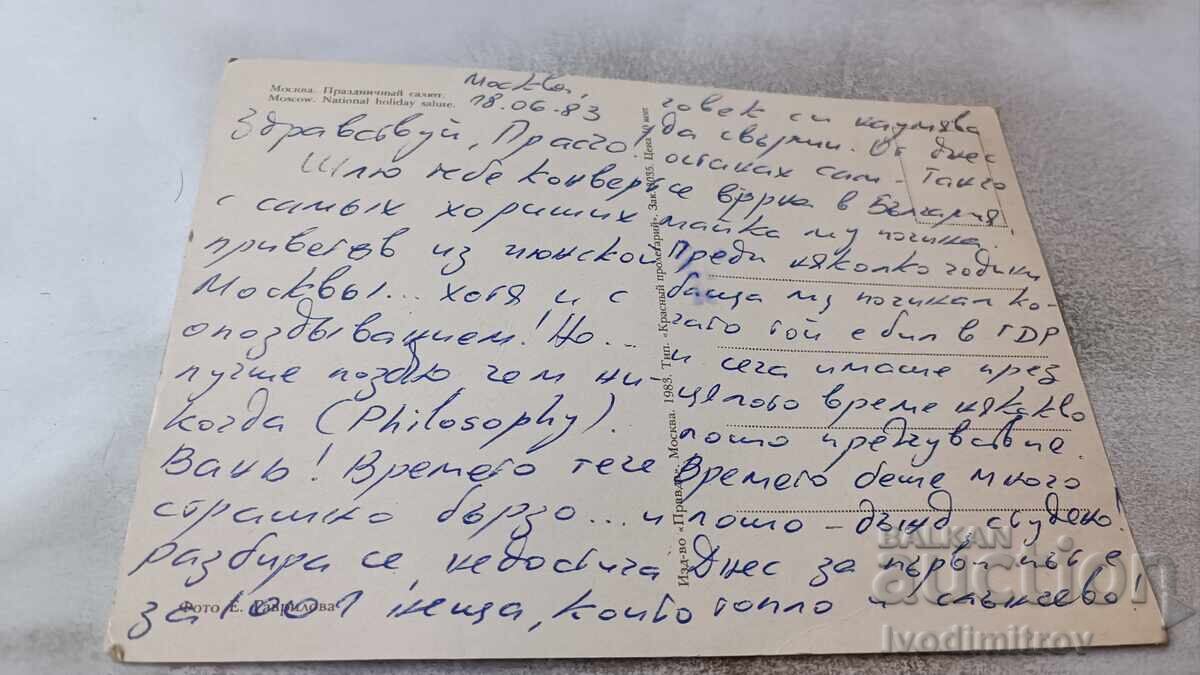 Москва. Праздничный салют.
Moscow. National holiday salute.
Москва,
18.06.83
Здравствуй, !
Шлю тебе конверт
с самых хороших
приветов из июнской
Москвы... хотя и с
опоздыванием! Но...
лучше поздно чем ни-
когда (Philosophy).
Вань! Времето тече
страшно бързо... и
разбира се, недостига
за 1001 неща, които
Фото Е. Гаврилова
Изд-во «Правда». Москва. 1983. Тип. «Красный пролетарий». Зак. Цена
човек си наумява
да свърши. От днес
останах сам – Танчо
се върна в България
майка му почина.
Преди няколко години
баща му починал ко-
гато той е бил в ГДР
и сега имаше през
цялото време някакво
лошо предчувствие.
Времето беше много
лошо – дъжд, студено!
Днес за първи път е
топло и слънчево!
BALKAN
auction
Ivodimitrov